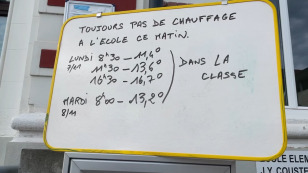 TOUJOURS PAS DE CHAUFFAGE
A L'ECOLE CE MATIN.
LUNDI 8H30 - 11,4°
7/11 11H30 - 13,6° DANS LA
16H30 - 16,7° CLASSE
MARDI 8H00 - 13,2°
8/11
ECOLE ELEM
J.Y. COUSTE